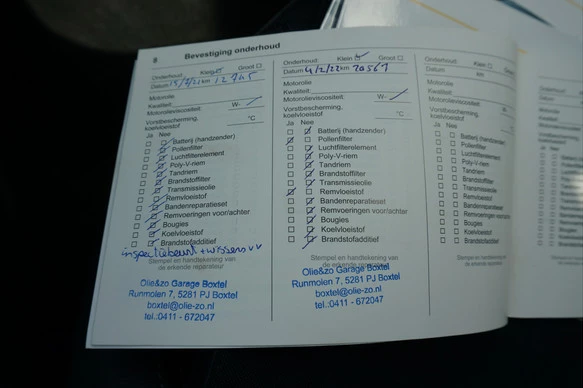 8 Bevestiging onderhoud
Onderhoud: Klein Groot
Datum 15/2/21 km 12745
Motorolie
Kwaliteit:
Motorolieviscositeit: W-
Vorstbescherming,
koelvloeistof °C
Ja Nee
Batterij (handzender)
Pollenfilter
Luchtfilterelement
Poly-V-riem
Tandriem
Brandstoffilter
Transmissieolie
Remvloeistof
Bandenreparatieset
Remvoeringen voor/achter
Bougies
Koelvloeistof
Brandstofadditief
inspectiebeurt + wissers v v
Stempel en handtekening van
de erkende reparateur
Olie&zo Garage Boxtel
Runmolen 7, 5281 PJ Boxtel
boxtel@olie-zo.nl
tel.:0411 - 672047
Onderhoud: Klein Groot
Datum 4/2/22 km 20561
Motorolie
Kwaliteit:
Motorolieviscositeit: W-
Vorstbescherming,
koelvloeistof °C
Ja Nee
Batterij (handzender)
Pollenfilter
Luchtfilterelement
Poly-V-riem
Tandriem
Brandstoffilter
Transmissieolie
Remvloeistof
Bandenreparatieset
Remvoeringen voor/achter
Bougies
Koelvloeistof
Brandstofadditief
Stempel en handtekening van
de erkende reparateur
Olie&zo Garage Boxtel
Runmolen 7, 5281 PJ Boxtel
boxtel@olie-zo.nl
tel.:0411 - 672047
Onderhoud: Klein Groot
Datum km
Motorolie
Kwaliteit:
Motorolieviscositeit: W-
Vorstbescherming,
koelvloeistof °C
Ja Nee
Batterij (handzender)
Pollenfilter
Luchtfilterelement
Poly-V-riem
Tandriem
Brandstoffilter
Transmissieolie
Remvloeistof
Bandenreparatieset
Remvoeringen voor/achter
Bougies
Koelvloeistof
Brandstofadditief
Stempel en handtekening van
de erkende reparateur